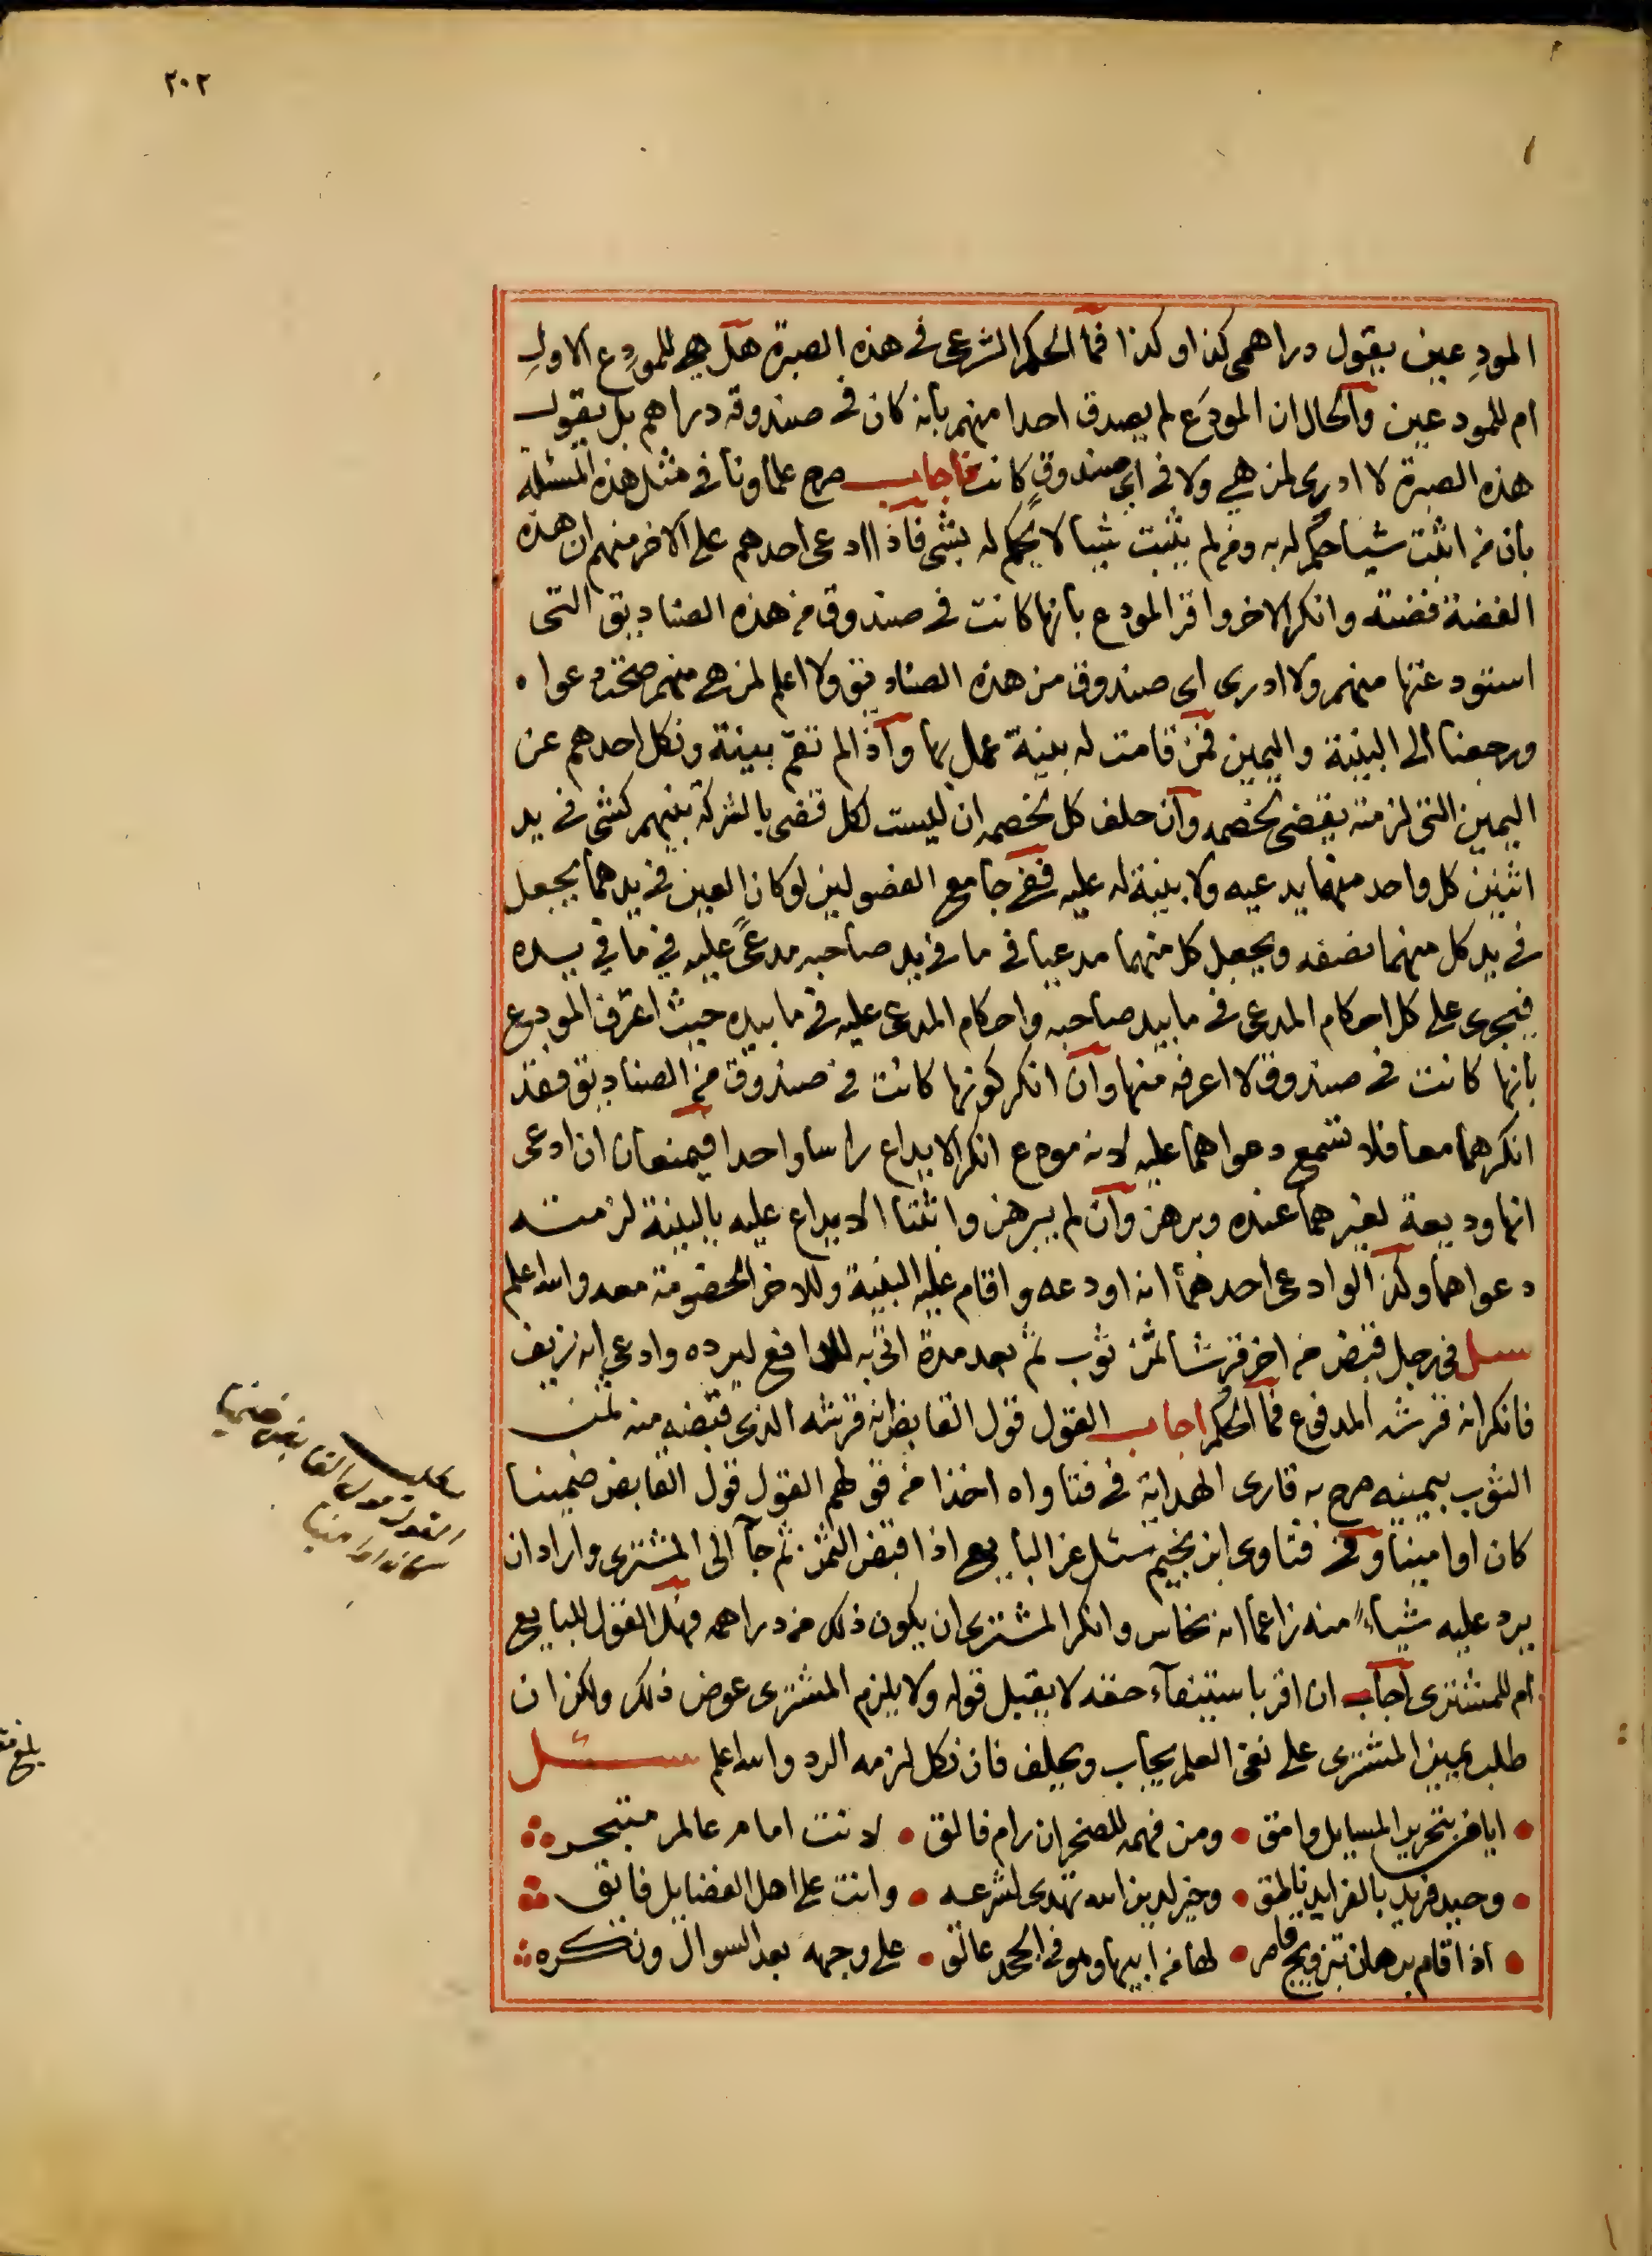 ٢٠٢
المودِعين يقول دراهمى كذا وكذا فما الحكم الشرعى فى هذه الصرة هل هى للمودع الاول
ام للمودعين والحال ان المودَع لم يصدق احدا منهم بانه كان فى صندوقه دراهم بل يقول
هذه الصرة لا ادرى لمن هى ولا فى اى صندوق كانت فاجاب صرح علماونا فى مثل هذه المسئلة
بان من اثبت شيا حكم له به ومن لم يثبت شيا لا يحكم له بشى فاذا ادعى احدهم على الاخر منهم ان هذه
الفضة فضته وانكر الاخر واقر المودع بانها كانت فى صندوق من هذه الصناديق التى
استودعتها منهم ولا ادرى اى صندوق من هذه الصناديق ولا اعلم لمن هى منهم صحت دعواه
ورجعنا الى البينة واليمين فمن قامت له بينة عمل بها واذا لم تقم بينة ونكل احدهم عن
اليمين التى لزمته يقضى لخصمه وان حلف كل لخصمه ان ليست لكل قضى بالشركة بينهم كشى فى يد
اثنين كل واحد منهما يدعيه ولا بينة له عليه ففى جامع الفصولين لو كان العين فى يدهما يجعل
فى يد كل منهما نصفه ويجعل كل منهما مدعيا فى ما فى يد صاحبه مدعىً عليه فى ما فى يده
فيجرى على كل احكام المدعى فى ما بيد صاحبه واحكام المدعى عليه فى ما بيده حيث اعترف المودع
بانها كانت فى صندوق لا اعرفه منها وان انكر كونها كانت فى صندوق من الصناديق فقد
انكرهما معا فلا تسمع دعواهما عليه لانه مودع انكر الايداع راسا واحدا فيمنعان ان ادعى
انها وديعة لغيرهما عنده وبرهن وان لم يبرهن واثبتا الايداع عليه بالبينة لزمته
دعواهما وكذا لو ادعى احدهما انه اودعه واقام عليه البينة وللاخر الخصومة معه والله اعلم
سئل فى رجل قبض من اخر قرشا ثمن ثوب ثم بعد مدة اتى به للدافع ليرده وادعى انه زيف
فانكر انه قرشه المدفوع فما الحكم اجاب القول قول القابض انه قرشه الذى قبضه منه ثمن
الثوب بيمينه صرح به قارى الهداية فى فتاواه اخذا من قولهم القول قول القابض ضمينا
كان او امينا وفى فتاوى ابن نجيم سئل عن البايع اذا قبض الثمن ثم جآ الى المشترى واراد ان
يرد عليه شياءً منه زاعما انه نحاس وانكر المشترى ان يكون ذلك من دراهمه فهل القول للبايع
ام للمشترى اجاب ان اقر باستيفآء حقه لا يقبل قوله ولا يلزم المشترى عوض ذلك ولكن ان
طلب يمين المشترى على نفى العلم يجاب ويحلف فان نكل لزمه الرد والله اعلم سئل
ايا من بتحرير المسايل وامق ومن فهمه للصخر ان رام فالق لانت امام عالم متبحر
وحيد فريد بالفرايد ناطق وخير لدين الله تهدى لشرعه وانت على اهل الفضايل فايق
اذا قام برهان بتزويج قاصر لها من ابيها وهو فى الحد عالق على وجهه بعد السوال ونكره
القول قول القابض ضمينا
كان او امينا
بلغ